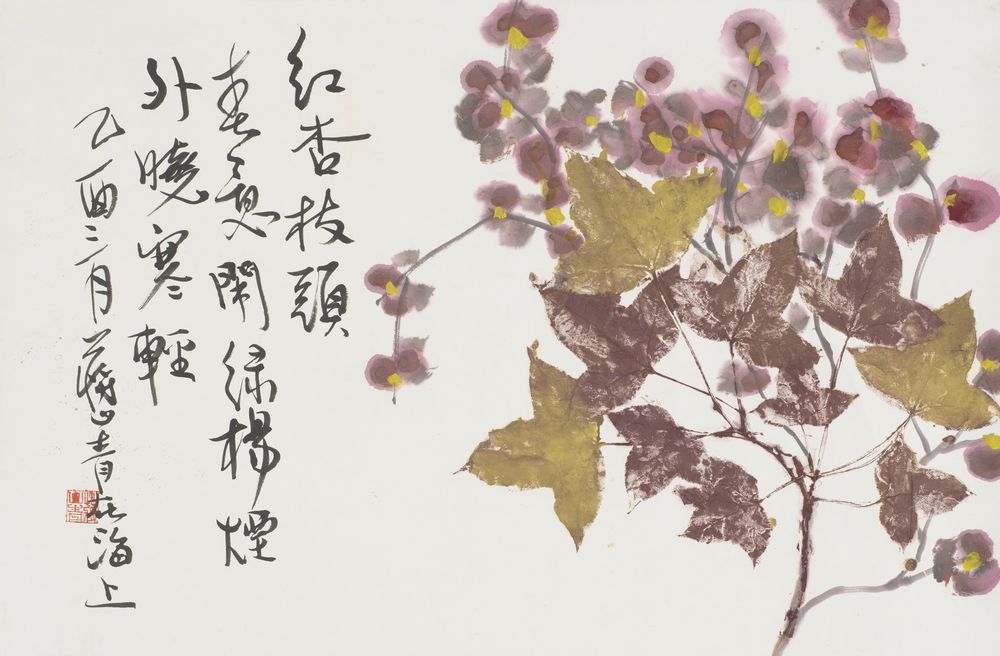 紅杏枝頭
春意鬧綠楊煙
外曉寒輕
乙酉二月蔣山青在海上